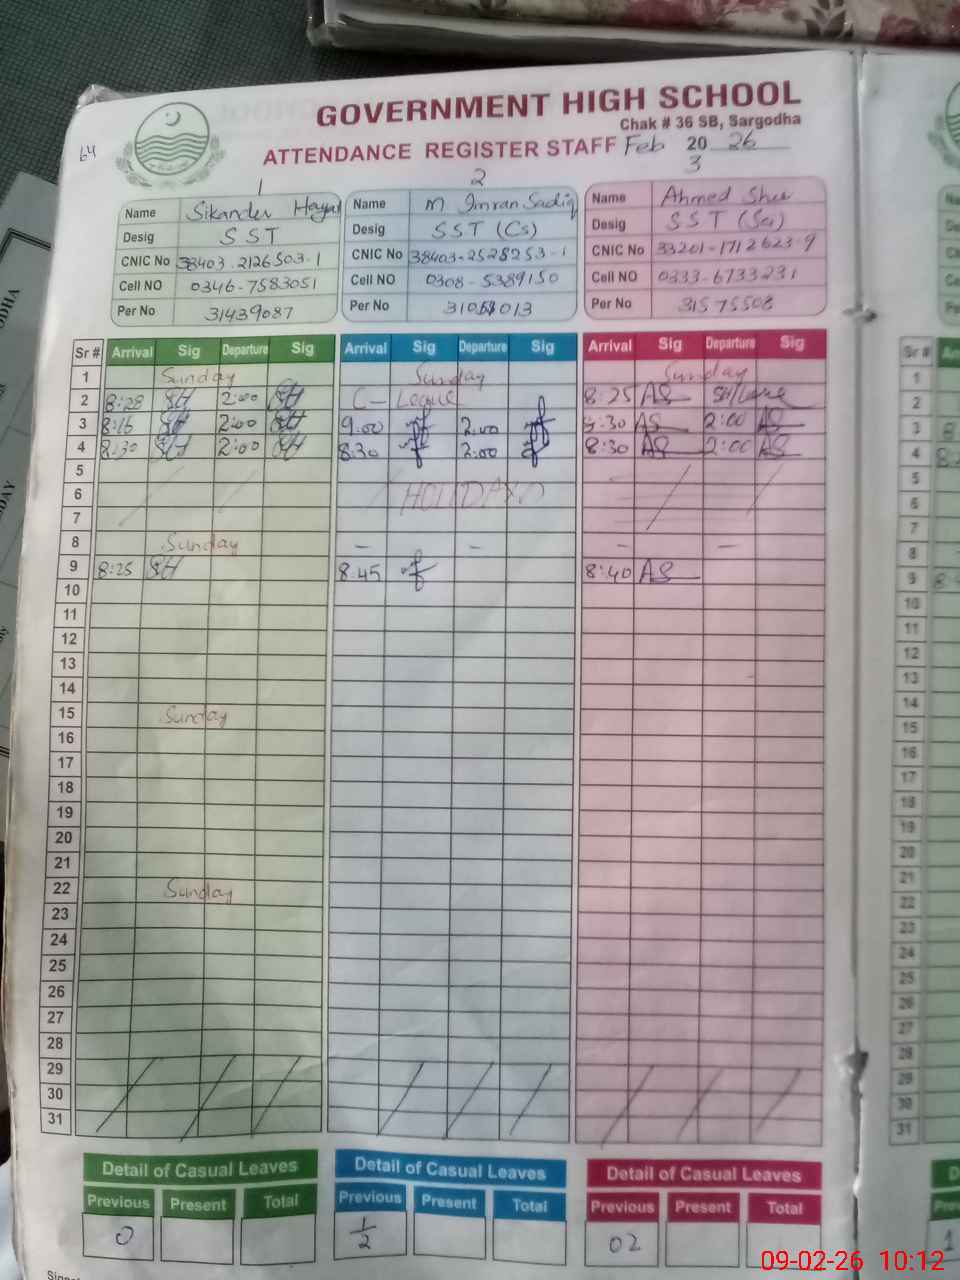 64
GOVERNMENT HIGH SCHOOL
Chak # 36 SB, Sargodha
ATTENDANCE REGISTER STAFF Feb 20 26
1 2 3
Name Sikander Hayat Name M Imran Sadiq Name Ahmed Sher
Desig SST Desig SST (Cs) Desig SST (Sci)
CNIC No 38403-2126503-1 CNIC No 38403-2528253-1 CNIC No 33201-1712623-9
Cell NO 0346-7583051 Cell NO 0308-5389150 Cell NO 0333-6733231
Per No 31439087 Per No Per No 31575508
Sr # Arrival Sig Departure Sig Arrival Sig Departure Sig Arrival Sig Departure Sig Sr #
1 Sunday Sunday Sunday 1
2 8:28 SH 2:00 SH C-Leave 8:25 AS 2
3 8:15 SH 2:00 SH 9.00 2.00 8:30 AS 2:00 AS 3
4 8:30 SH 2:00 SH 8:30 2:00 8:30 AS 2:00 AS 4
5 5
6 HOLIDAY 6
7 7
8 Sunday - - - - 8
9 8:25 SH 8.45 8:40 AS 9
10 10
11 11
12 12
13 13
14 14
15 Sunday 15
16 16
17 17
18 18
19 19
20 20
21 21
22 Sunday 22
23 23
24 24
25 25
26 26
27 27
28 28
29 29
30 30
31 31
Detail of Casual Leaves Detail of Casual Leaves Detail of Casual Leaves
Previous Present Total Previous Present Total Previous Present Total
0 1/2 02 1
09-02-26 10:12